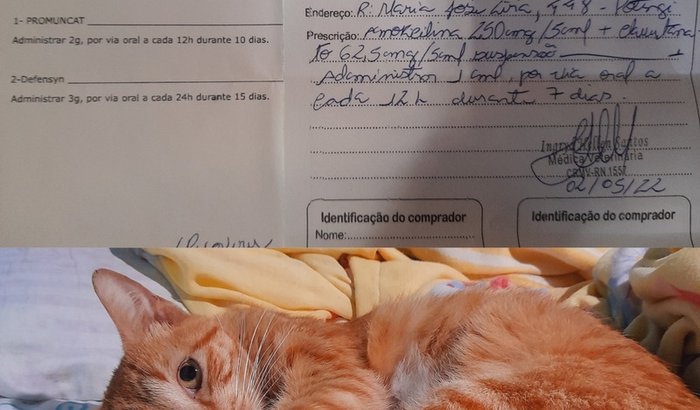 1- PROMUNCAT
Administrar 2g, por via oral a cada 12h durante 10 dias.
2-Defensyn
Administrar 3g, por via oral a cada 24h durante 15 dias.
Endereço: R: Maria José Lira, 448 - Potengi
Prescrição: Amoxicilina 250mg/5ml + Clavulana
to 62,5mg/5ml suspensão
Administrar 1 ml, por via oral a
cada 12h durante 7 dias
Médica Veterinária
CRMV-RN 1557
02/05/22
Identificação do comprador
Nome:
Identificação do comprador